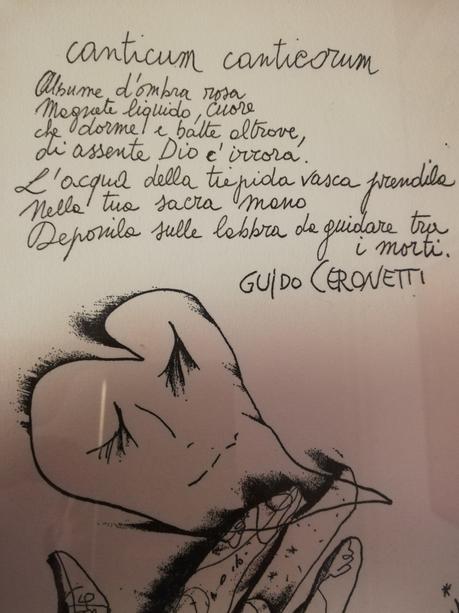 canticum canticorum
Albume d'ombra rosa
Magnete liquido, cuore
che dorme e batte altrove,
di assente Dio c'irrora.
L'acqua della tiepida vasca prendila
Nella tua sacra mano
Deponila sulle labbra da guidare tra
i morti.
GUIDO CERONETTI